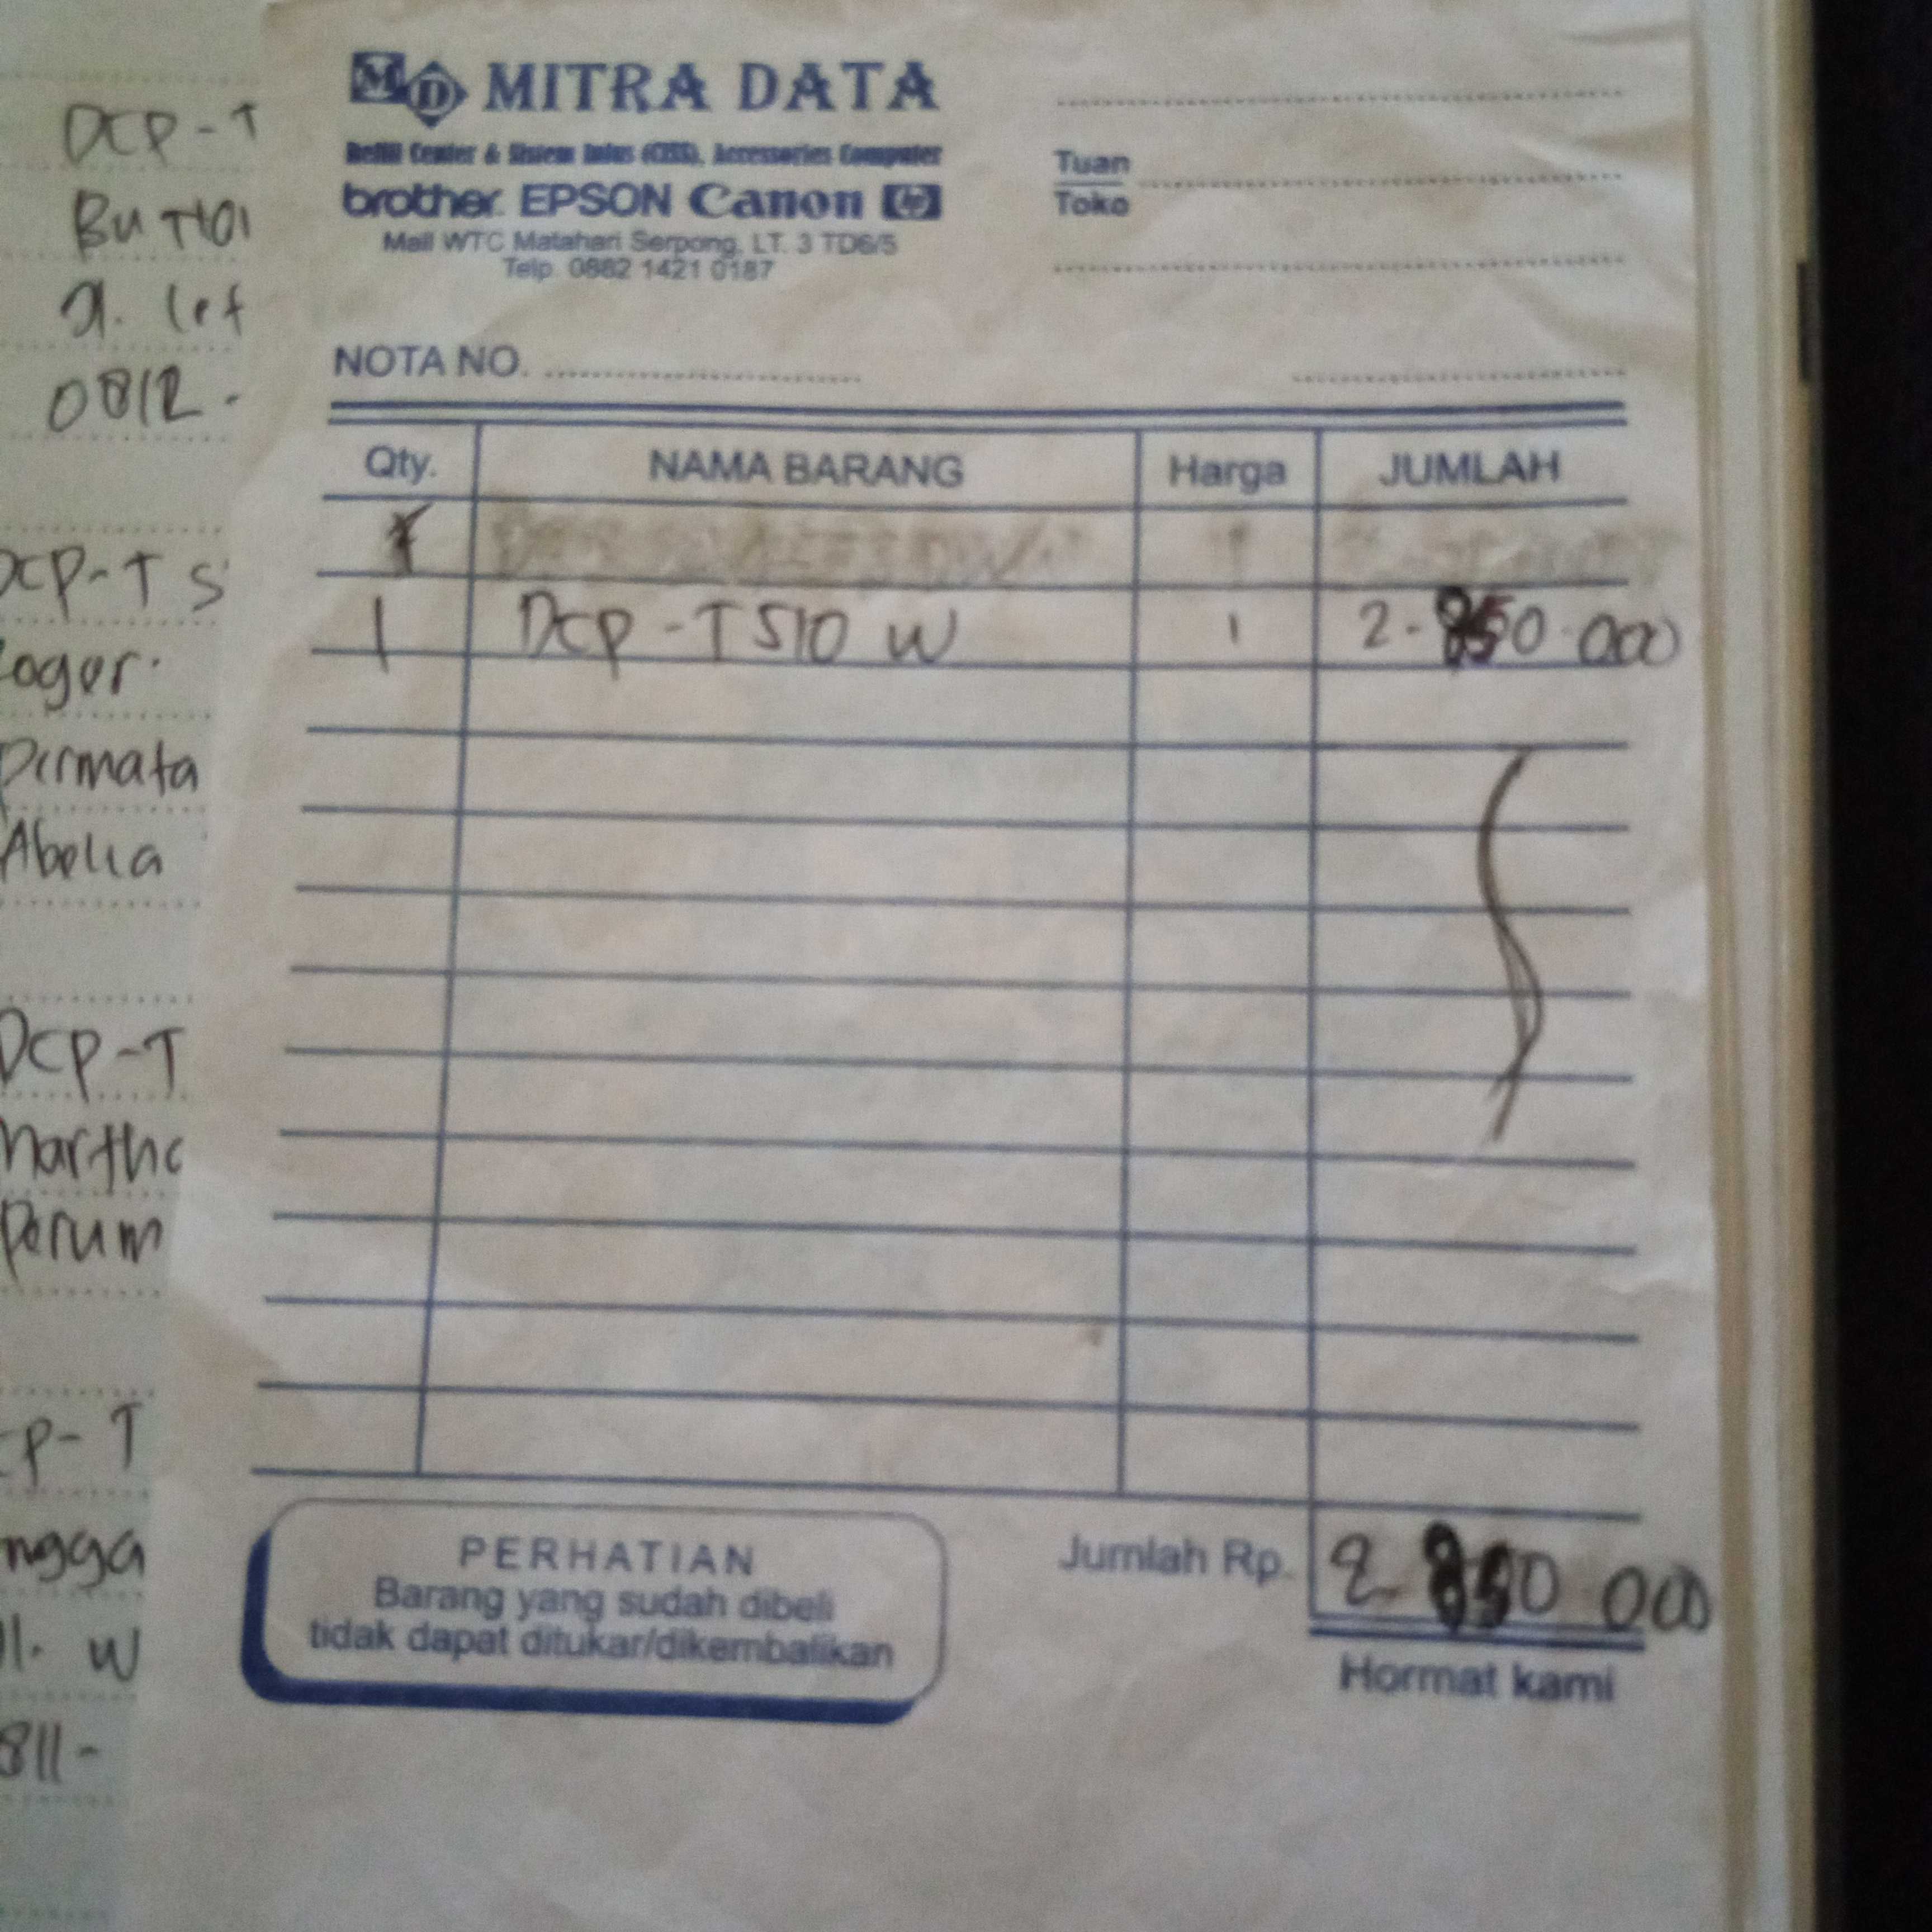 DCP-T
0812-
DCP-T S
Permata
Abelia
DCP-T
Perum
P-T
ngga
W
811-
MD MITRA DATA
Refill Center & Sistem Infus (CISS), Accessories Computer
brother EPSON Canon hp
Mall WTC Matahari Serpong, LT. 3 TD6/5
Telp. 0882 1421 0187
Tuan
Toko
NOTA NO.
Qty. NAMA BARANG Harga JUMLAH
1 DCP-T510 W 1 2.850.000
PERHATIAN
Barang yang sudah dibeli
tidak dapat ditukar/dikembalikan
Jumlah Rp. 2.850.000
Hormat kami